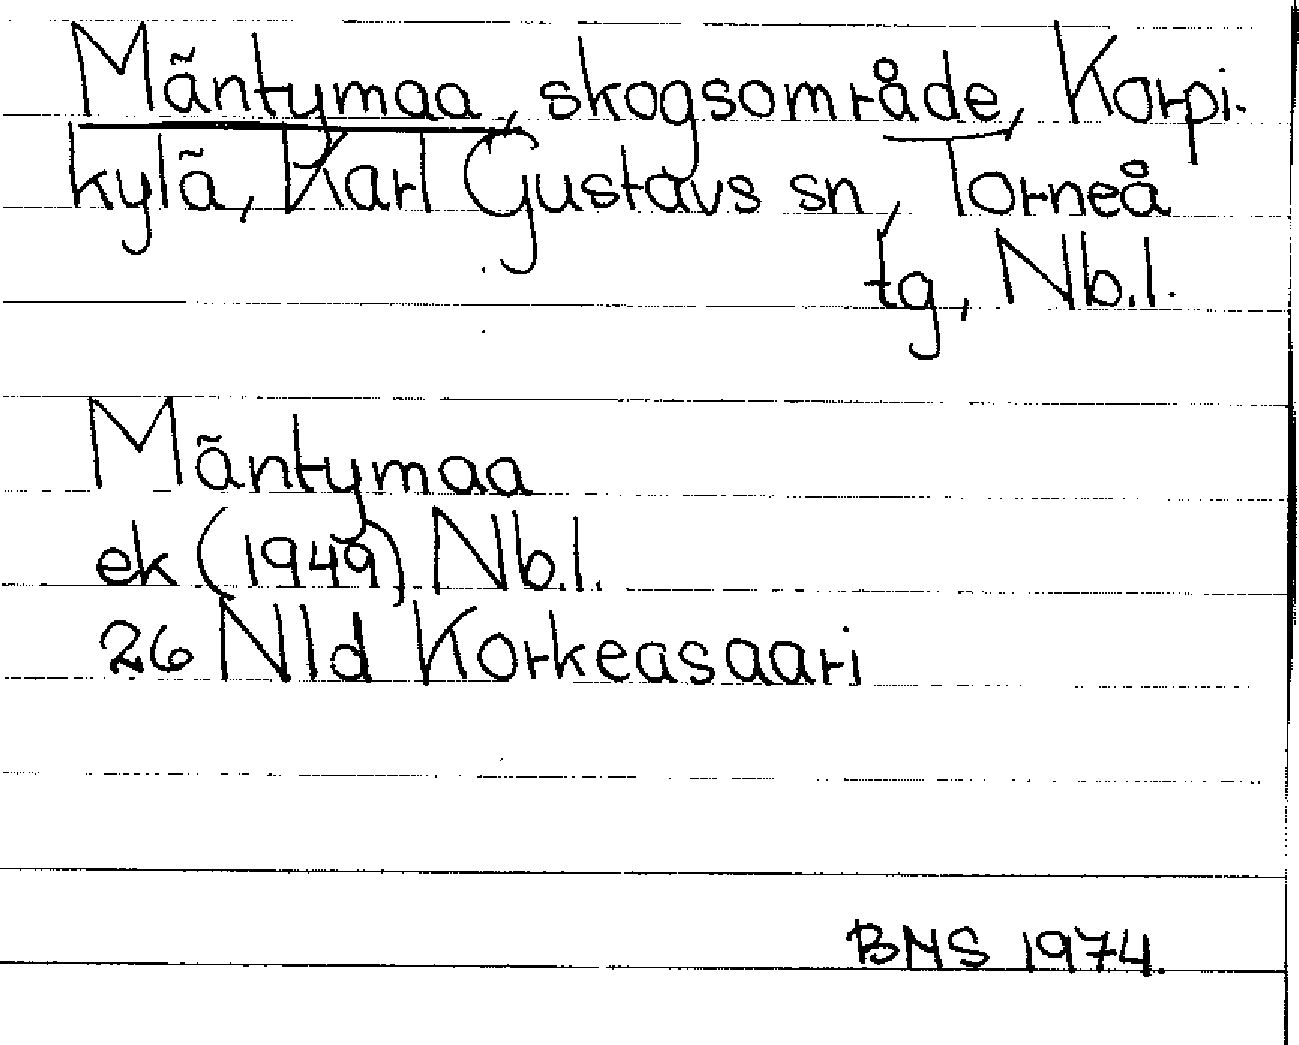 Mäntymaa, skogsområde, Korpi-
kylä, Karl Gustavs sn, Torneå
tg, Nb.l.
Mäntymaa
ek (1949) Nb.l.
26 Nld Korkeasaari
BMS 1974.